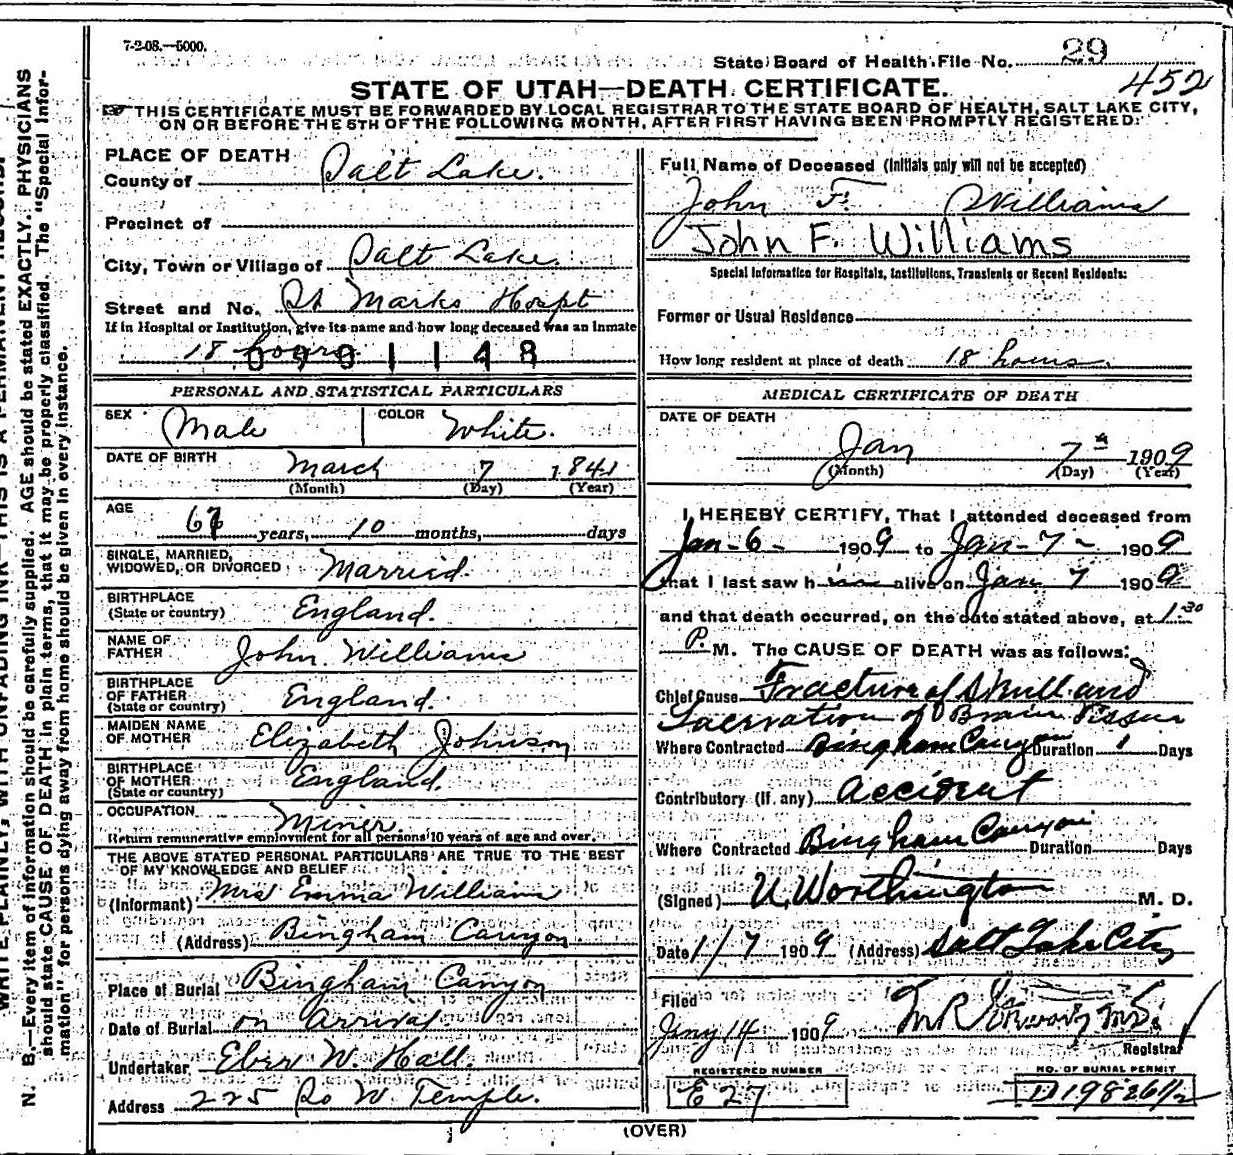 7-2-08.—5000.
State Board of Health File No. 29
452
STATE OF UTAH—DEATH CERTIFICATE.
THIS CERTIFICATE MUST BE FORWARDED BY LOCAL REGISTRAR TO THE STATE BOARD OF HEALTH, SALT LAKE CITY,
ON OR BEFORE THE 5TH OF THE FOLLOWING MONTH, AFTER FIRST HAVING BEEN PROMPTLY REGISTERED.
PLACE OF DEATH
County of Salt Lake.
Precinct of
City, Town or Village of Salt Lake.
Street and No. St Marks Hospt
If in Hospital or Institution, give its name and how long deceased was an inmate
18 hours
0901148
PERSONAL AND STATISTICAL PARTICULARS
SEX Male COLOR White.
DATE OF BIRTH March 7 1841
(Month) (Day) (Year)
AGE
years, 10 months, days
SINGLE, MARRIED,
WIDOWED, OR DIVORCED Married.
BIRTHPLACE
(State or country) England.
NAME OF
FATHER John Williams
BIRTHPLACE
OF FATHER
(State or country) England.
MAIDEN NAME
OF MOTHER Elizabeth Johnson
BIRTHPLACE
OF MOTHER
(State or country) England.
OCCUPATION Miner
Return remunerative employment for all persons 10 years of age and over.
THE ABOVE STATED PERSONAL PARTICULARS ARE TRUE TO THE BEST
OF MY KNOWLEDGE AND BELIEF
(Informant) Mrs Emma Williams
(Address) Bingham Canyon
Place of Burial Bingham Canyon
Date of Burial on Arrival
Undertaker Eber W. Hall.
Address 225 So W. Temple.
Full Name of Deceased (Initials only will not be accepted)
John F. Williams
John F. Williams
Special Information for Hospitals, Institutions, Transients or Recent Residents:
Former or Usual Residence
How long resident at place of death 18 hours.
MEDICAL CERTIFICATE OF DEATH
DATE OF DEATH
Jan 7th 1909
(Month) (Day) (Year)
I HEREBY CERTIFY, That I attended deceased from
Jan-6- 1909 to Jan-7- 1909
that I last saw him alive on Jan. 7 1909
and that death occurred, on the date stated above, at 1:30
P. M. The CAUSE OF DEATH was as follows:
Chief Cause Fracture of Skull and
Lacervation of Brain Tissue
Where Contracted Bingham Canyon Duration 1 Days
Contributory (if any) Accident
Where Contracted Bingham Canyon Duration Days
(Signed) U. Worthington M. D.
Date 1/7 1909 (Address) Salt Lake City
Filed
Jany 14 1909
Registrar
REGISTERED NUMBER
E 27
NO. OF BURIAL PERMIT
D1982 6 1/2
(OVER)
N. B.—Every item of information should be carefully supplied. AGE should be stated EXACTLY. PHYSICIANS
should state CAUSE OF DEATH in plain terms, that it may be properly classified. The "Special Infor-
mation" for persons dying away from home should be given in every instance.